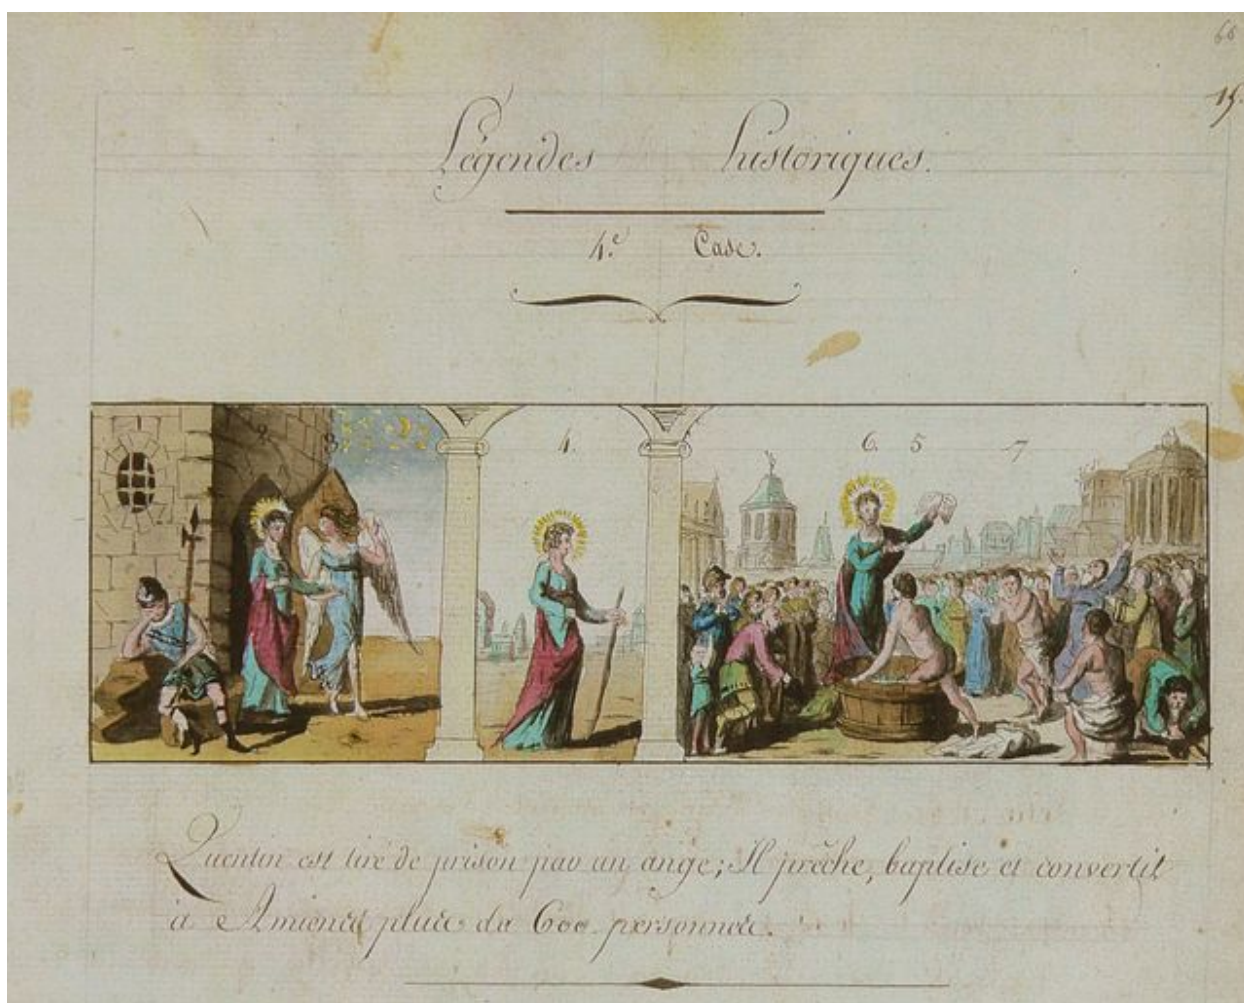 66
15.
Légendes historiques.
4.e Case.
2. 3. 4. 6. 5 7
Quentin est tiré de prison par un ange; Il prêche, baptise et convertit
à Amiens plus de 600 personnes.